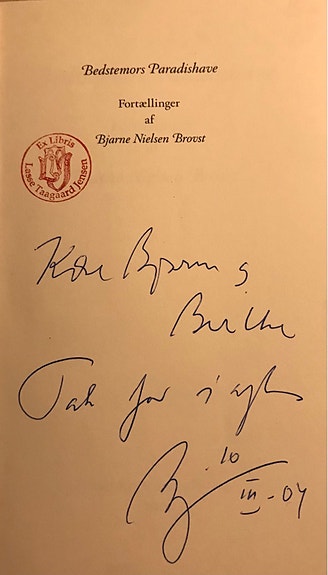 Bedstemors Paradishave
Fortællinger
af
Bjarne Nielsen Brovst
Ex Libris
Lasse Taagaard Jensen
Kære Bjarne og
Birthe
Tak for i aften
10
III - 04